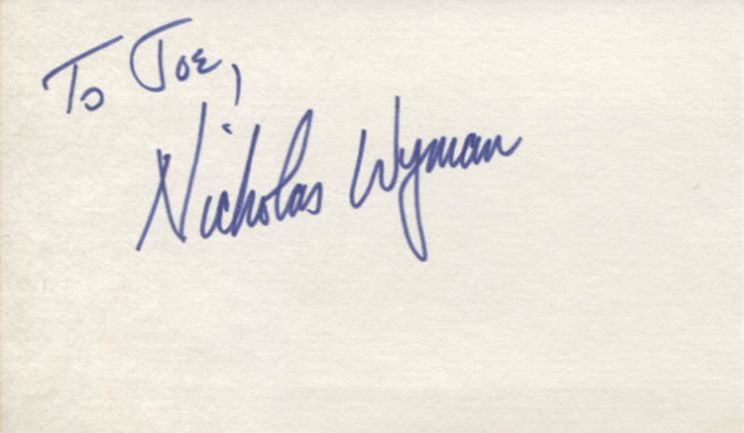 To Joe,
Nicholas Wyman